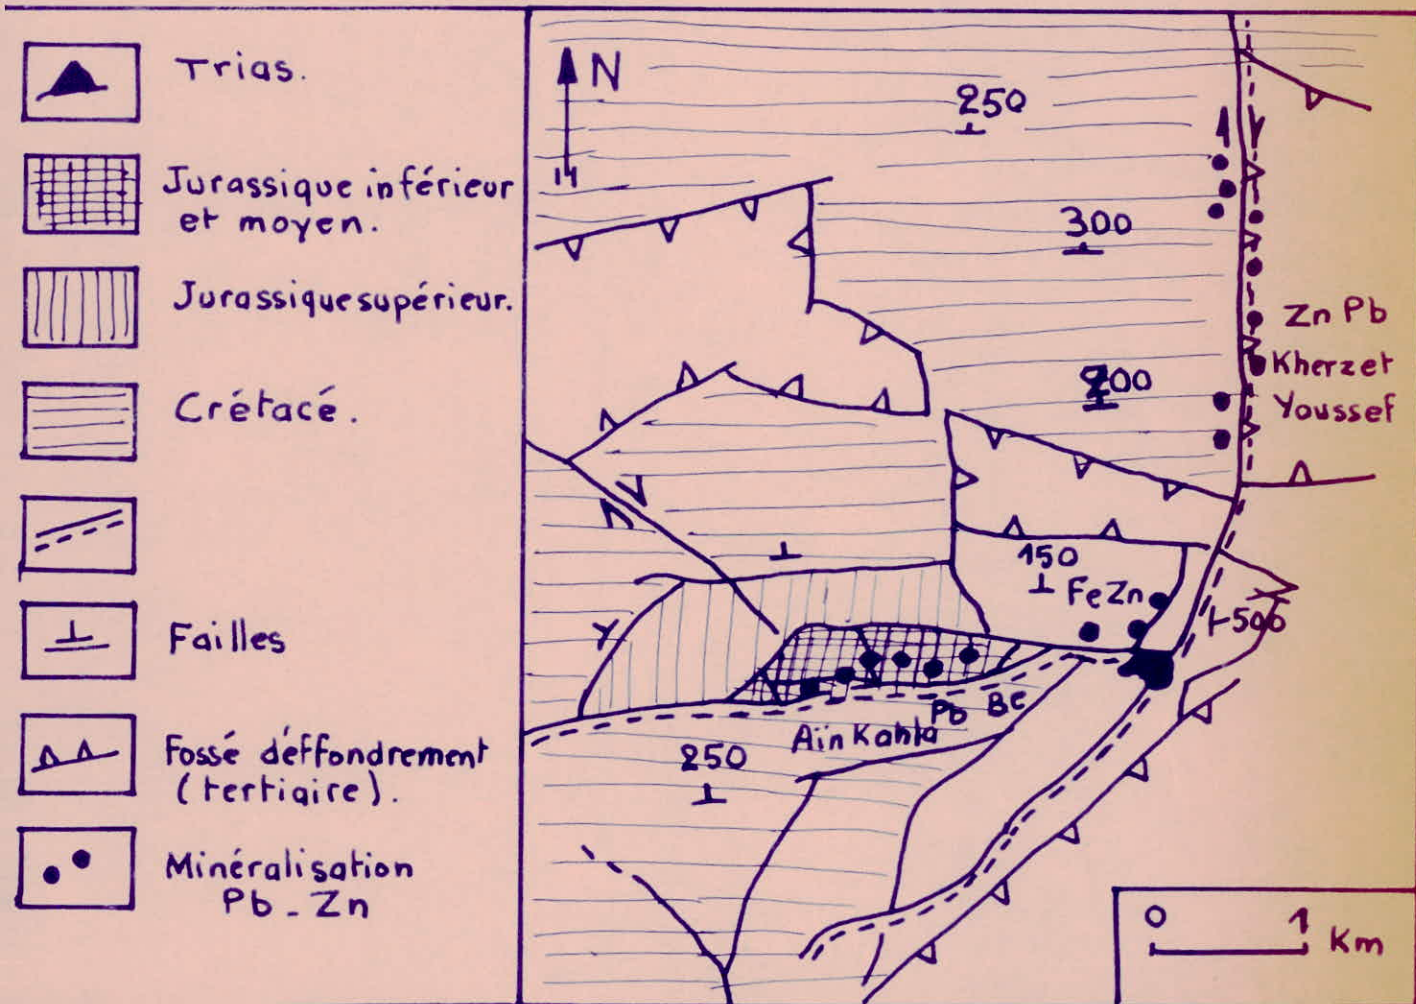 Trias.
Jurassique inférieur
et moyen.
Jurassique supérieur.
Crétacé.
Failles
Fossé d'éffondrement
(tertiaire).
Minéralisation
Pb - Zn
N
250
300
200
Zn Pb
Kherzet
Youssef
150
Fe Zn
500
Pb Ba
Aïn Kahla
250
0 1 Km